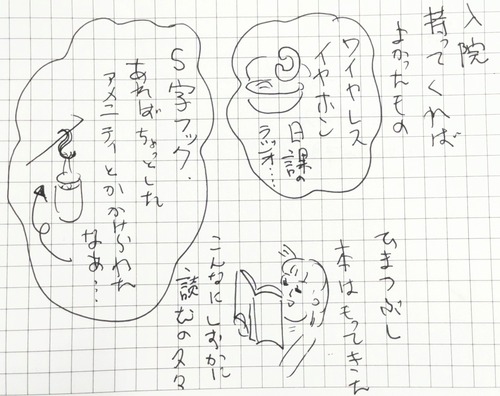 入院
持ってくれば
よかったもの
ワイヤレス
イヤホン
日課の
ラジオ…
S字フック.
あればちょっとした
アメニティとかかけられた
なあ…
ひまつぶし
本はもってきた
こんなにしずかに
読むの久々